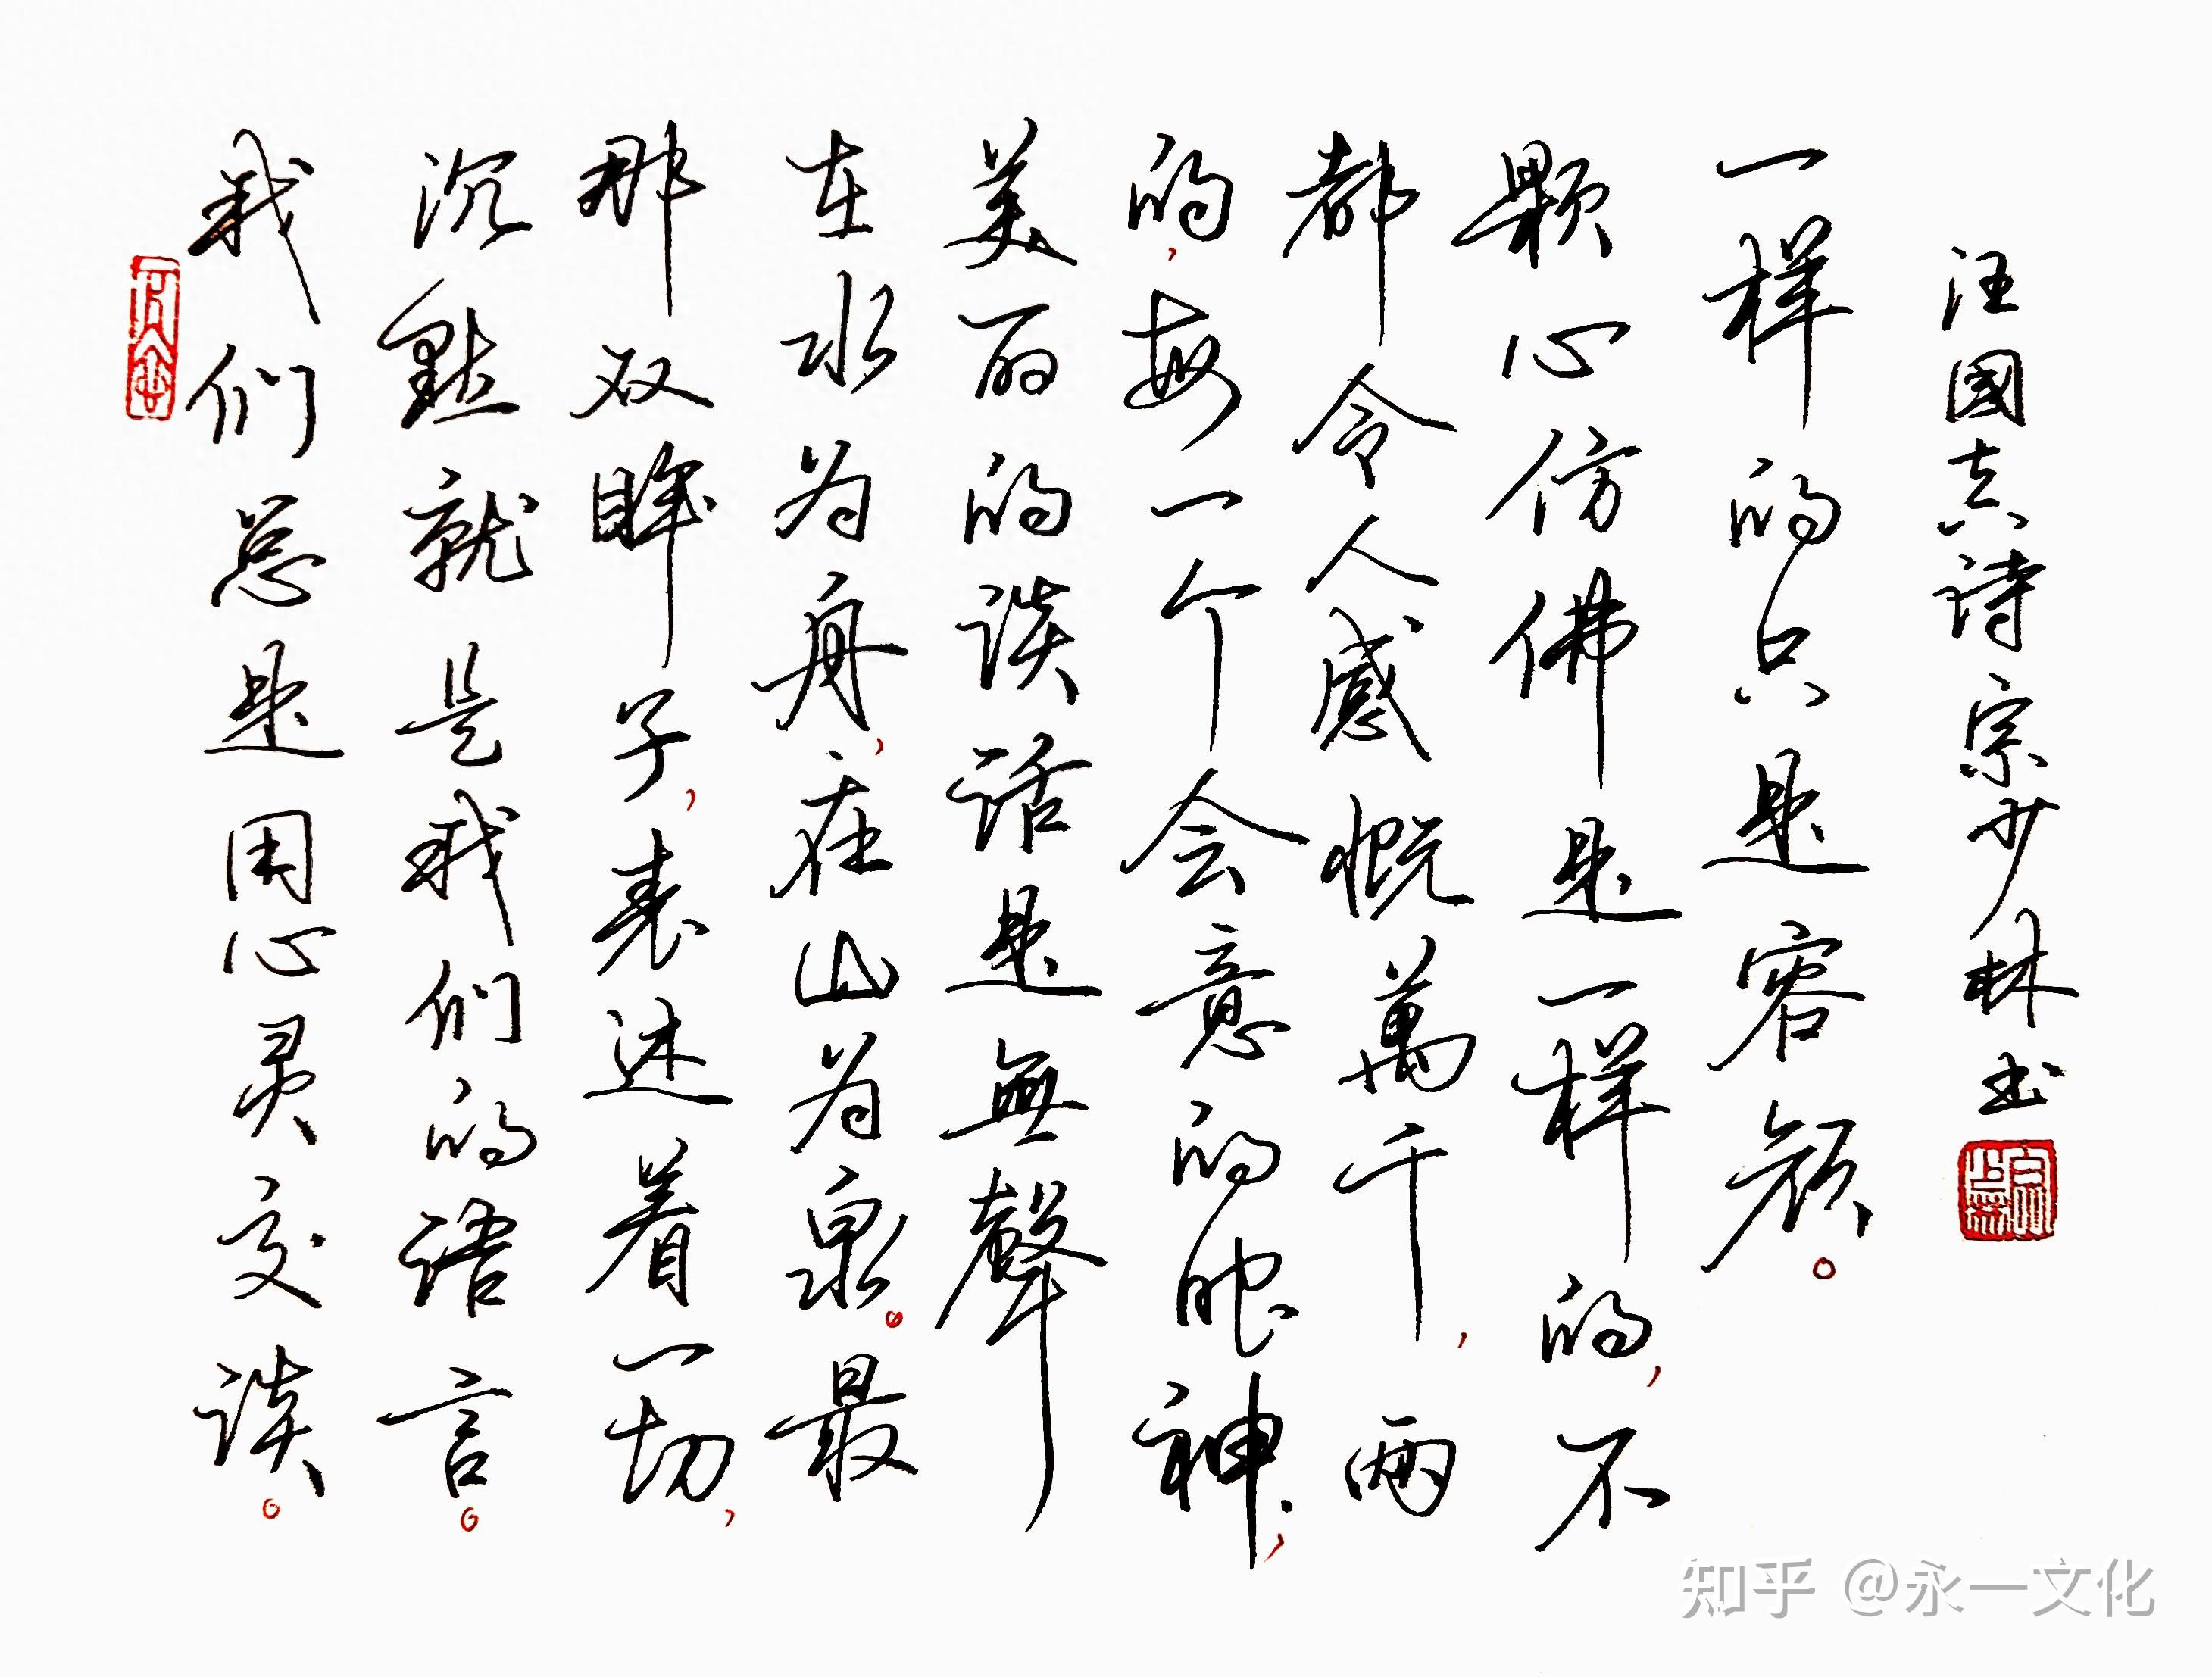 我们总是用心灵交谈。
沉默就是我们的语言。
那双眸子，表述着一切，
在水为舟，在山为泉。最
美丽的谈话是無聲
的，每一个会意的眼神，
都令人感慨萬千，两
颗心仿佛是一样的，不
一样的只是容颜。
汪國真诗宗少林书
知乎 @永一文化